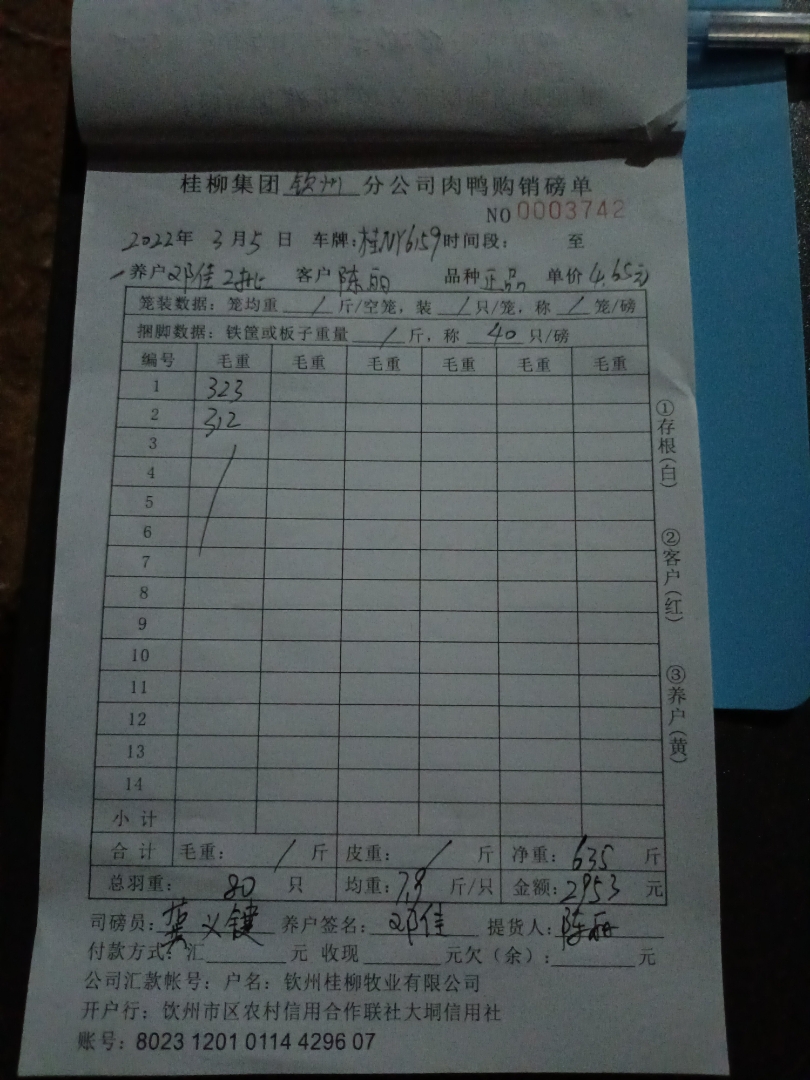 桂柳集团 钦州 分公司肉鸭购销磅单
NO 0003742
2022年 3月5日 车牌:桂NY6159 时间段: 至
养户 邓佳2批 客户 陈丽 品种 正品 单价 4.65元
笼装数据: 笼均重 / 斤/空笼, 装 / 只/笼, 称 / 笼/磅
捆脚数据: 铁筐或板子重量 / 斤, 称 40 只/磅
编号 毛重 毛重 毛重 毛重 毛重 毛重
1 323
2 312
3
4
5
6
7
8
9
10
11
12
13
14
小计
合计 毛重: / 斤 皮重: / 斤 净重: 635 斤
总羽重: 80 只 均重: 7.9 斤/只 金额: 2953 元
司磅员: 龚义键 养户签名: 邓佳 提货人: 陈丽
付款方式: 汇 元 收现 元欠(余): 元
公司汇款帐号: 户名: 钦州桂柳牧业有限公司
开户行: 钦州市区农村信用合作联社大垌信用社
账号: 8023 1201 0114 4296 07
①存根(白)
②客户(红)
③养户(黄)